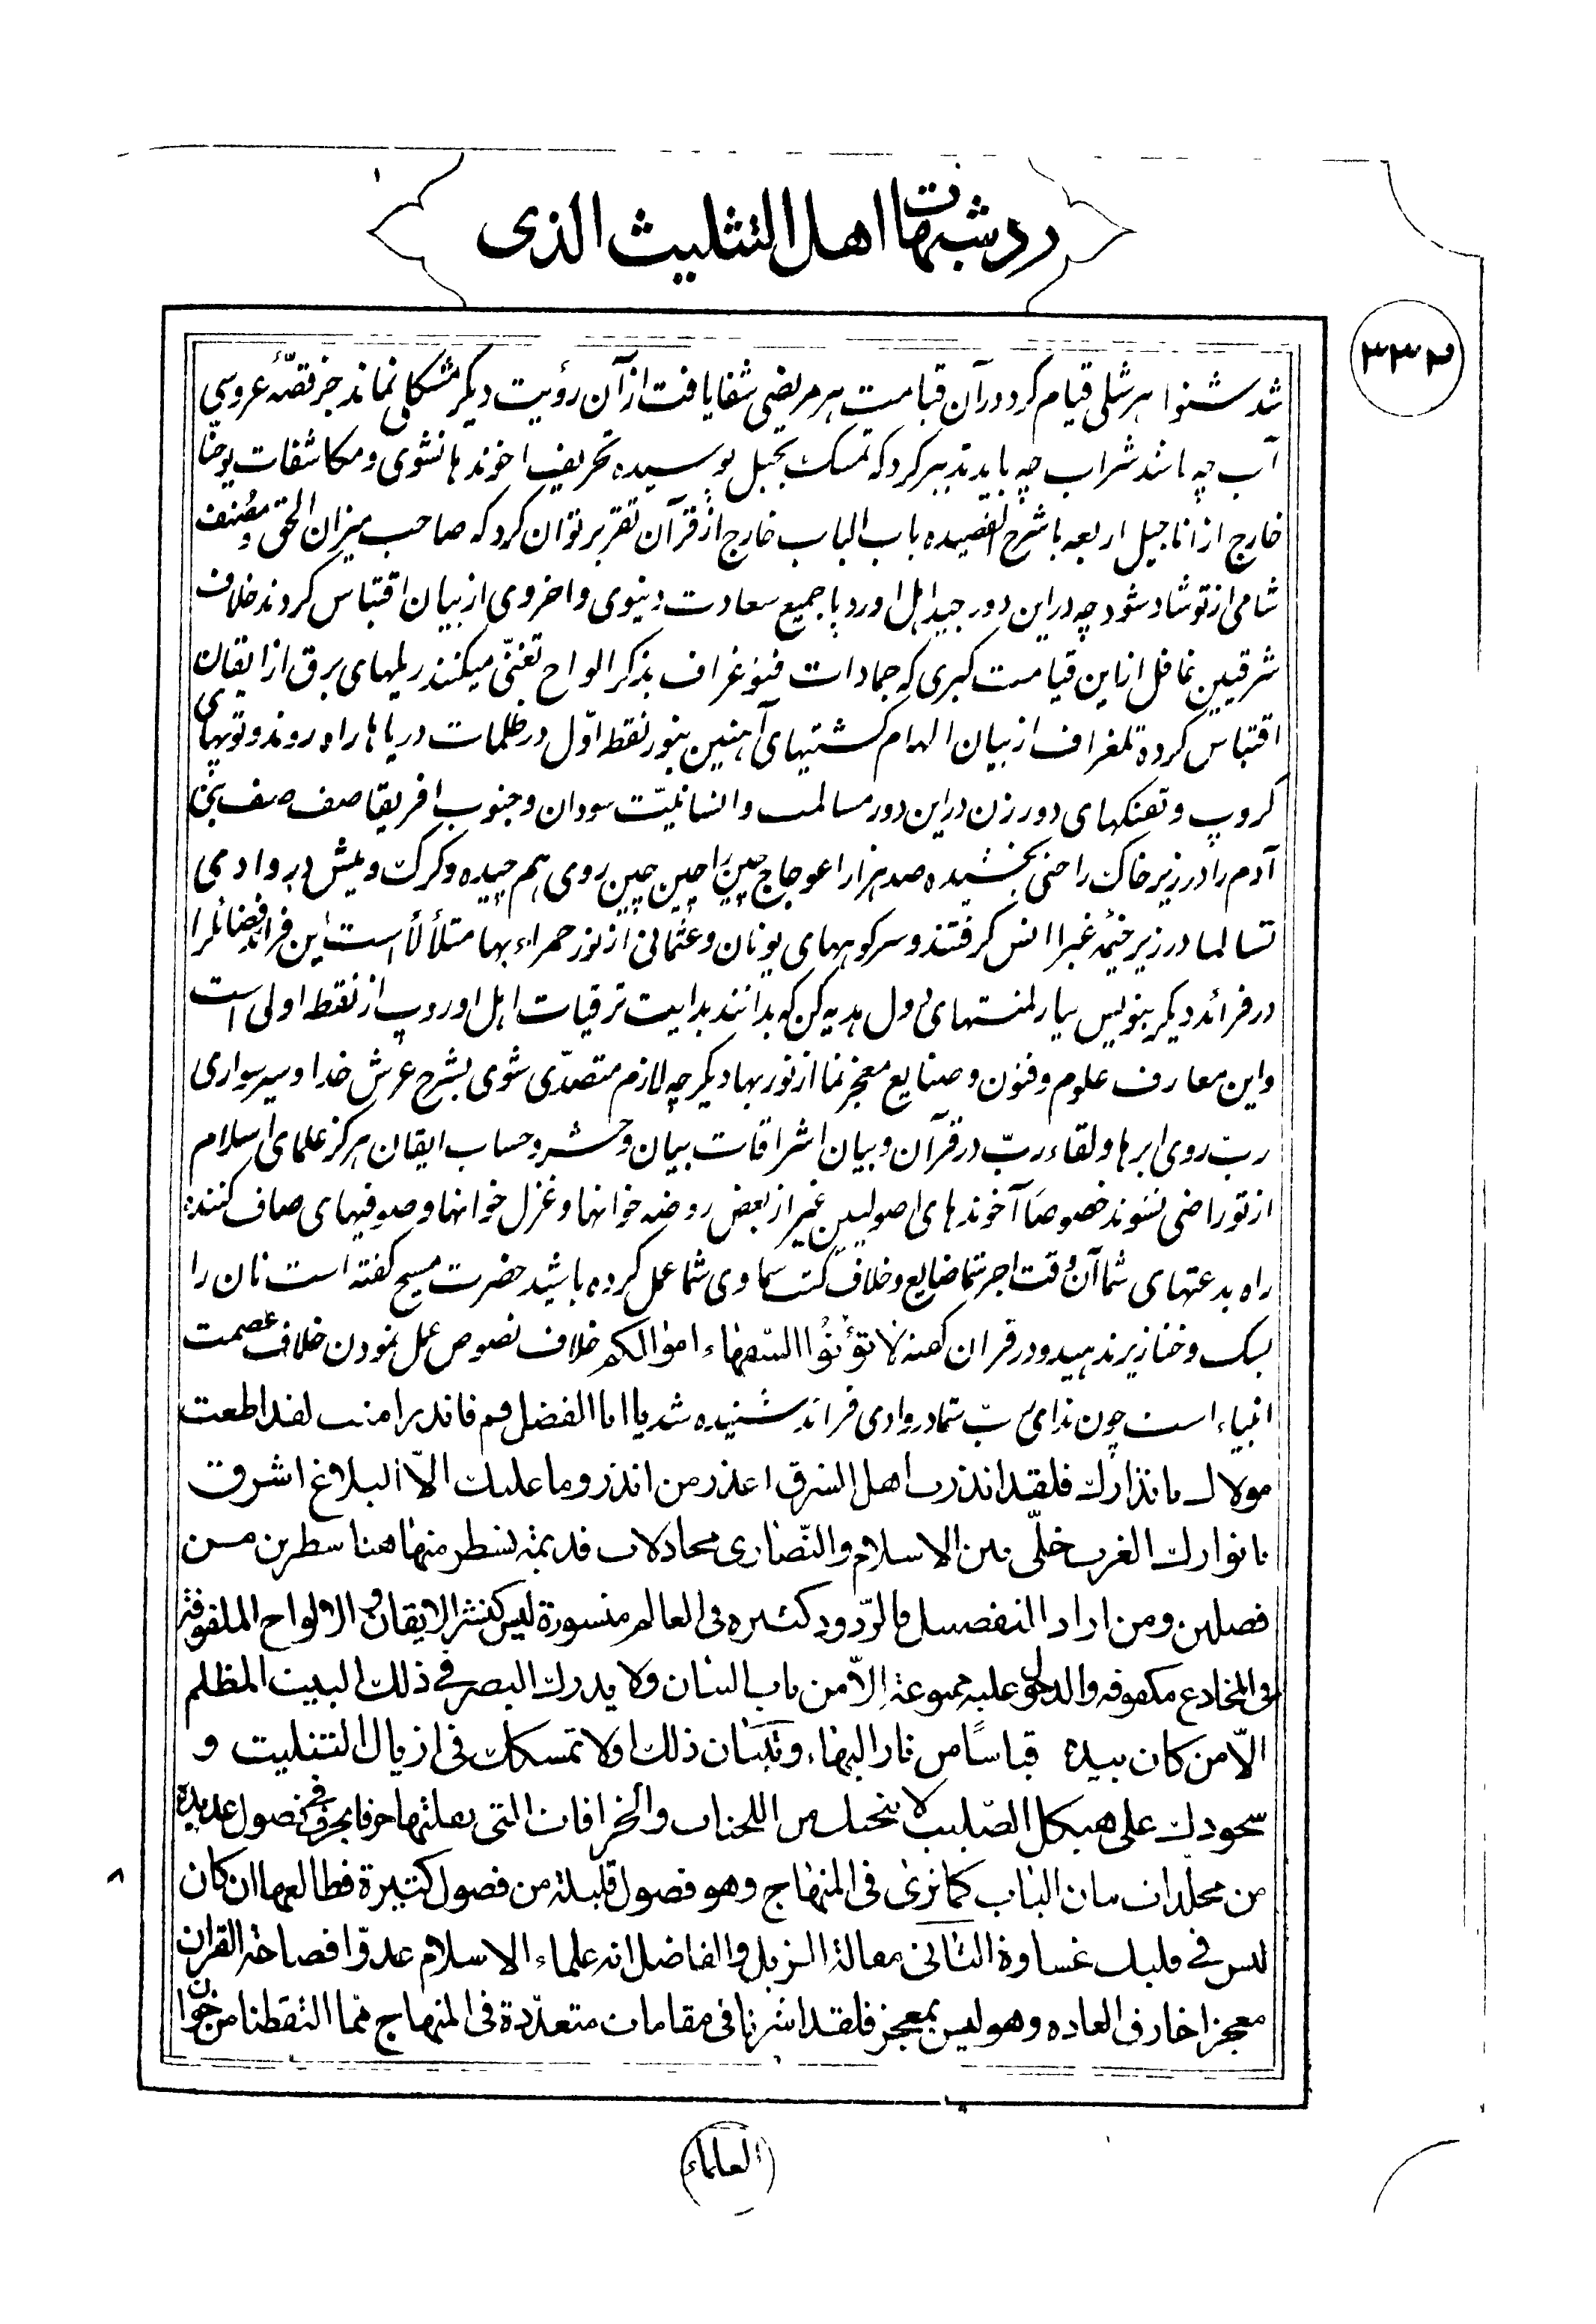 رد شبهات اهل التثلیث الذی
۳۳۲
شد شنوا هر شلی قیام کرد در آن قیامت هر مریضی شفا یافت از آن رؤیت دیگر مشکلی نماند جز قصّهٔ عروسی
آب چه باشد شراب چه باید تدبیر کرد که تمسک بحبل پوسیده تحریف اخوندها نشوی و مکاشفات یوحنّا
خارج از اناجیل اربعه با شرح القصیده باب الباب خارج از قرآن تقریر توان کرد که صاحب میزان الحق و مصنف
شامی از تو شاد شود چه در این دور جید اهل اورپا جمیع سعادت دنیوی و اخروی از بیان اقتباس کردند خلاف
شرقیین غافل از این قیامت کبری که جمادات فنوغراف بذکر الواح تغنّی میکنند ریلهای برق از ایقان
اقتباس کرده تلغراف از بیان الهام کشتیهای آهنین بنور نقطه اوّل در ظلمات دریاها راه روند و توپهای
کروپ و تفنکهای دورزن در این دور مسالمت و انسانیّت سودان و جنوب افریقا صف صف بنی
آدم را در زیر خاک راضی بخشیده صد هزار اعوجاج چین را چین چین روی هم چیده و کرک و میش در وادی
تسالیا در زیر خیمهٔ غبرا انس کرفتند و سرکوههای یونان و عثمانی از نور حمراء بها متلألأ است این فرائد فضائلرا
در فرائد دیکر بنویس بپارلمنتهای دول هدیه کن که بدانند بدایت ترقیات اهل اوروپ از نقطه اولی است
و این معارف علوم و فنون و صنایع معجز نما از نور بها دیکر چه لازم متصدّی شوی بشرح عرش خدا و سیر سواری
ربّ روی ابرها و لقاء ربّ در قرآن و بیان اشراقات بیان و حشر و حساب ایقان هرکز علمای اسلام
از تو راضی نشوند خصوصاً آخوندهای اصولیین غیر از بعض روضه خوانها و غزل خوانها و صوفیهای صاف کننده
راه بدعتهای شما آن وقت اجر شما ضایع و خلاف کتب سماوی شما عمل کرده باشید حضرت مسیح کفته است نان را
بسک و خنازیر ندهید و در قران کفته لا تؤتوا السّفهاء اموالکم خلاف نصوص عمل نمودن خلاف عصمت
انبیاء است چون ندای ربّ شما در وادی فرائد شنیده شد یا ابا الفضل قم فانذر امنت لقد اطعت
مولاك بانذارك فلقد انذرت اهل الشرق اعذر من انذر و ما علیك الاّ البلاغ اشرقت
بانوارك الغرب خلّی بین الاسلام و النّصاری مجادلات قدیمة نسطر منها هنا سطرین من
فصلین و من اراد التفصیل فالرّدود کثیره فی العالم منشورة لیس کنشر الایقان و الالواح الملفوفة
فی المخادع مکفوفه و الدخول علیه ممنوعة الاّ من باب البیان و لا یدرك البصر فی ذلك البیت المظلم
الاّ من كان بیده قباسًا من نار البهاء و تبیان ذلك اولا تمسكك فی اذیال التثلیت و
سجودك علی هیكل الصّلیب لا ینجیك من اللحنات و الخرافات التی نقلتها حرفا بحرف فی فصول عدیدة
من مجلدات بیان الباب كما تری فی المنهاج و هو فصول قلیلة من فصول كثیرة فطالعها ان كان
لیس فی قلبك غساوة الثانی مقالة النزیل و الفاضل انه علماء الاسلام عدوّا فصاحة القران
معجزا خارق العاده و هو لیس بمعجز فلقد اشرنا فی مقامات متعدّدة فی المنهاج مما التقطنا من خوان
العلماء